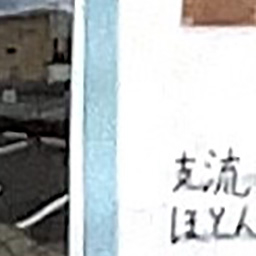 支流
ほとん